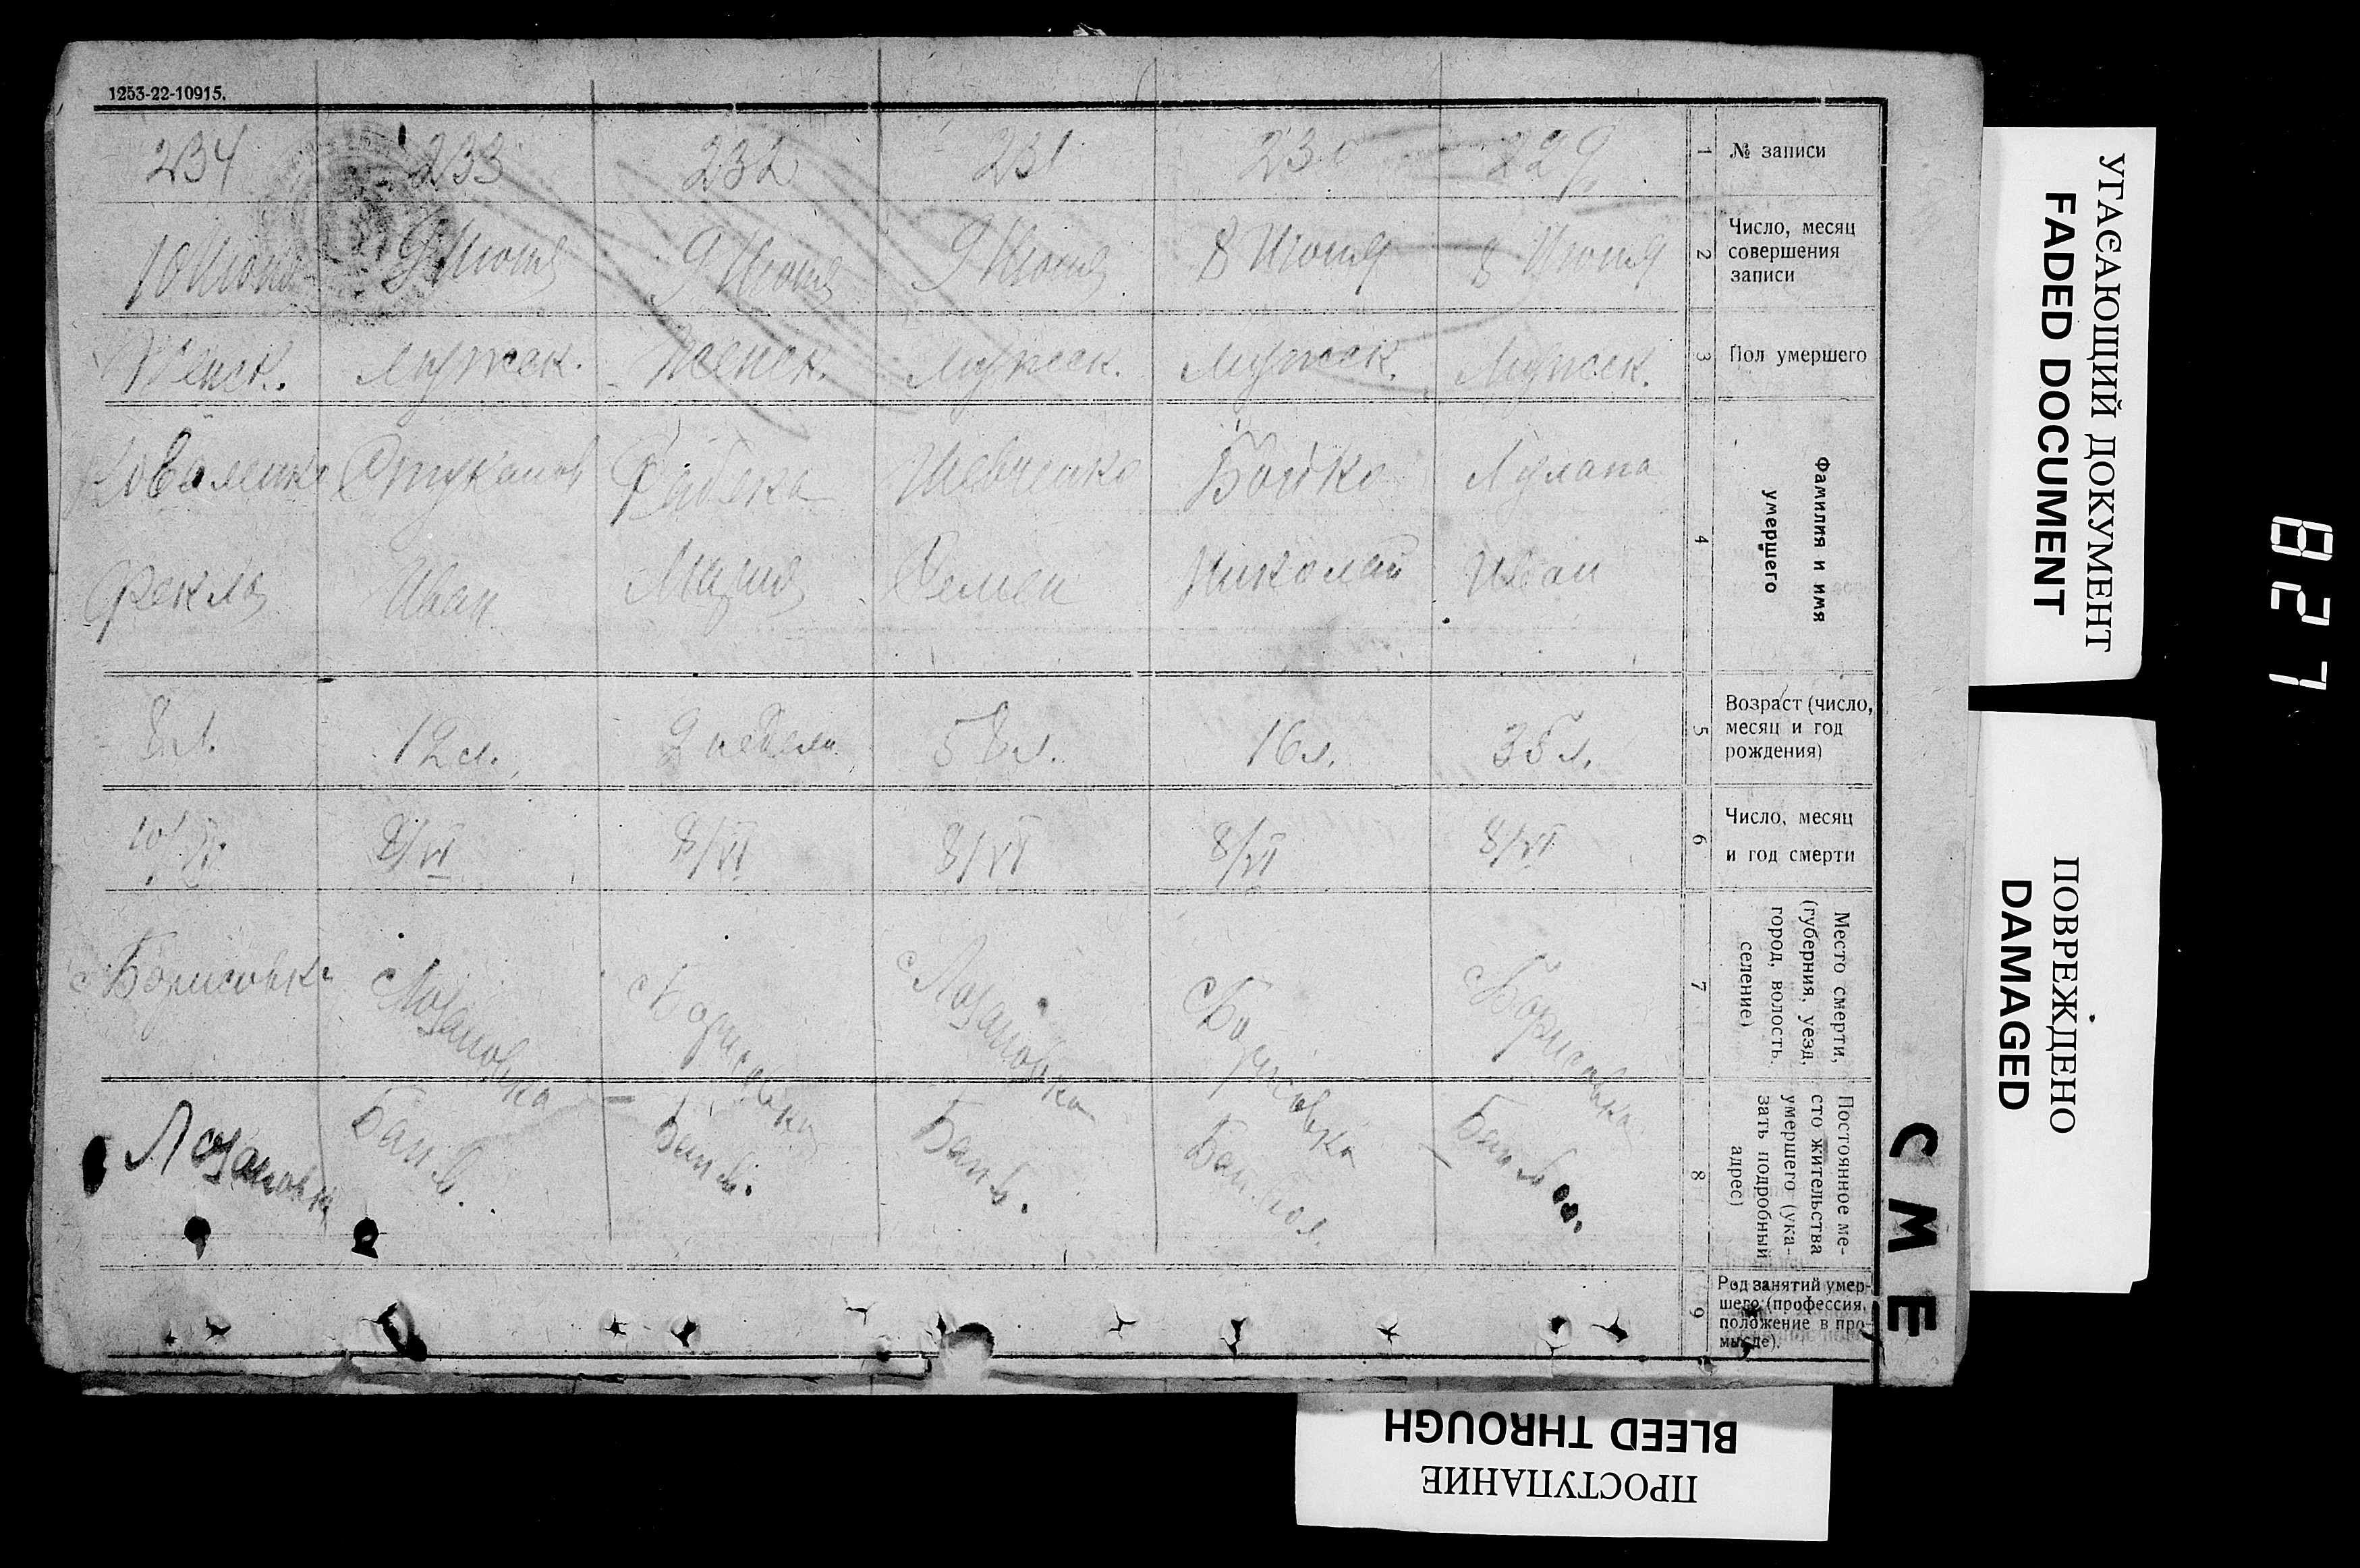 1253-22-10915.
234 233 232 231 230 229 1 № записи
10 Июня 9 Июня 9 Июня 9 Июня 8 Июня 8 Июня 2 Число, месяц
совершения
записи
Женск. Мужск. Женск. Мужск. Мужск. Мужск. 3 Пол умершего
Коваленко Шевченко Бойко
Фекла Иван Мария Семен Николай Иван
4 Фамилия и имя
умершего
8 л. 12 л. 2 недели 58 л. 16 л. 35 л. 5 Возраст (число,
месяц и год
рождения)
10/VI 8/VI 8/VI 8/VI 8/VI 8/VI 6 Число, месяц
и год смерти
с Борисовка с Лозановка с Борисовка с Лозановка с Борисовка с Борисовка
7 Место смерти,
(губерния, уезд,
город, волость.
селение)
Лозановка Бан. в. Бан. в. Бан. в. Бан. вол.
8 Постоянное ме-
сто жительства
умершего (ука-
зать подробный
адрес)
9 Род занятий умер-
шего (профессия,
положение в про-
мысле).
УГАСАЮЩИЙ ДОКУМЕНТ
FADED DOCUMENT
ПОВРЕЖДЕНО
DAMAGED
СМЕ
827
BLEED THROUGH
ПРОСТУПАНИЕ